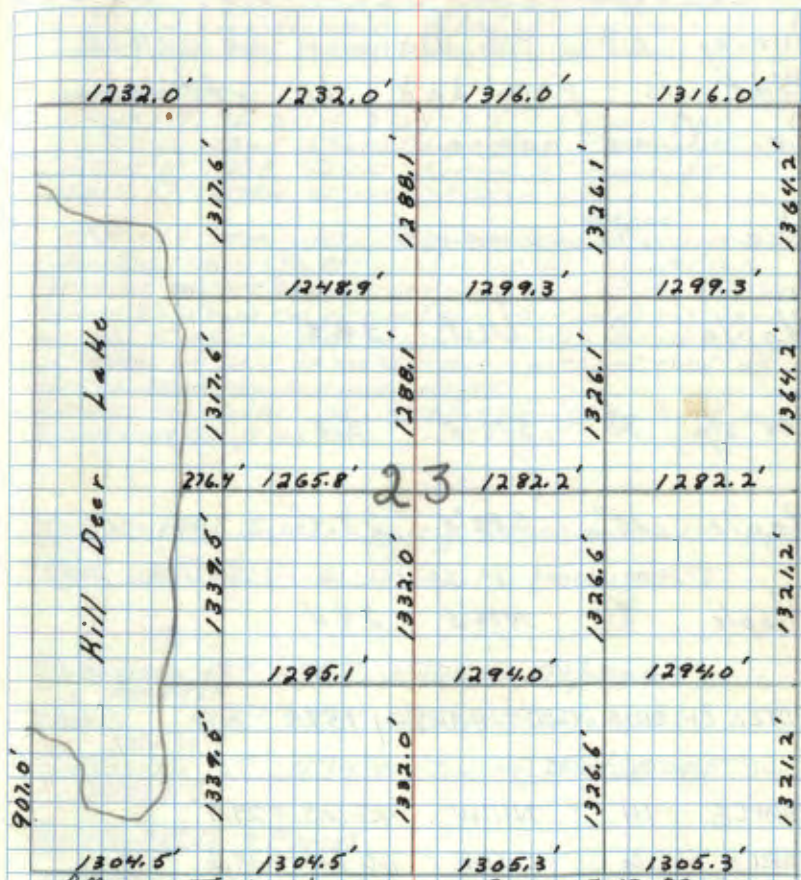 1232.0' 1232.0' 1316.0' 1316.0'
1317.6' 1288.1' 1326.1' 1364.2'
1248.9' 1299.3' 1299.3'
Kill Deer Lake
1317.6' 1288.1' 1326.1' 1364.2'
276.4' 1265.8' 23 1282.2' 1282.2'
1339.5' 1332.0' 1326.6' 1321.2'
1295.1' 1294.0' 1294.0'
907.0' 1339.5' 1332.0' 1326.6' 1321.2'
1304.5' 1304.5' 1305.3' 1305.3'